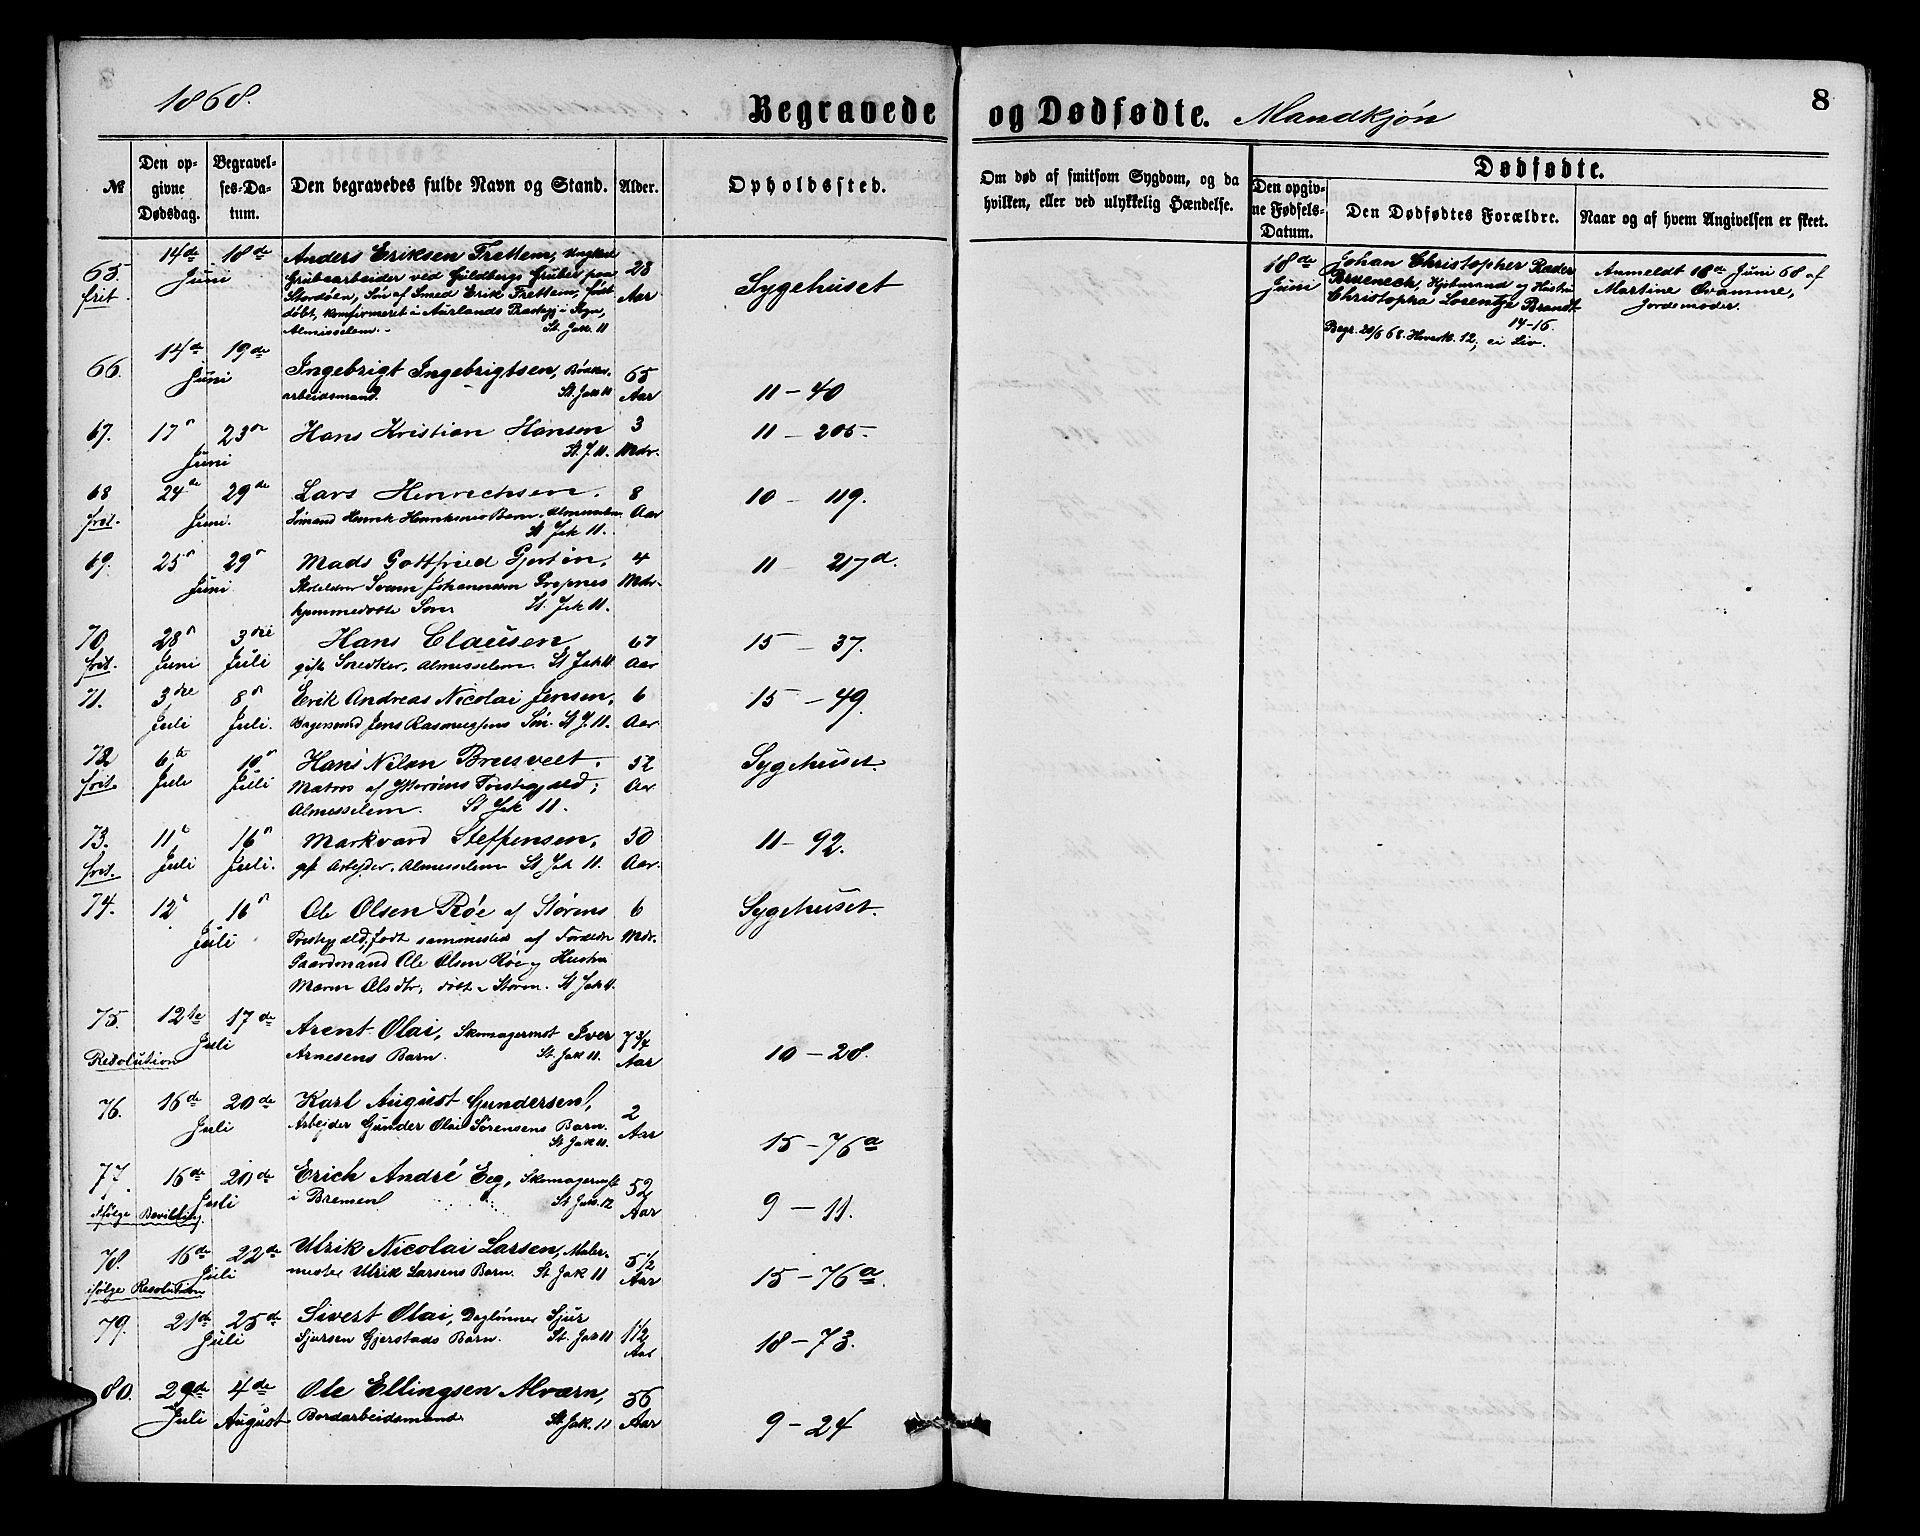 1868.
Begravede og Dødfødte. Mandkjøn
8
№
Den opgivne Dødsdag.
Begravelses-Datum.
Den begravedes fulde Navn og Stand.
Alder.
Opholdssted.
Om død af smitsom Sygdom, og da hvilken, eller ved ulykkelig Hændelse.
Dødfødte.
Den opgivne Fødsels-Datum.
Den Dødfødtes Forældre.
Naar og af hvem Angivelsen er skeet.
65. 14de 18de Anders Eriksen Frettem, Ungkarl
frit. Juni Grubearbeider ved Guldbergs Gruber paa 28 Sygehuset
Stordøen, Søn af Smed Erik Frettem, født Aar
døbt, konfirmeret i Aurlands Præstegj. i Sogn,
Almisselem. St. Jak. 11
18de Johan Christopher Rader Anmeldt 18de Juni 68 af
Juni Brueneck, Hjulmand og Hustru Martine Qvamme,
Christopha Lorentze Brandt Jordemoder.
14-16.
Begr. 20/6 68. Hovedk. 12, ei Liv.
66. 14de 19de Ingebrigt Ingebrigtsen, 65
Juni arbeidsmand. St. Jak 11 Aar 11 - 40
67. 17de 23de Hans Kristian Hansen 3 11 - 205.
Juni St. J. 11. Mdr.
68 24de 29de Lars Henrichsen. 8 10 - 119.
frit. Juni. Sømand Henrik Henriksens Barn. Almisselem Aar
St Jak 11.
69. 25de 29de Mads Gottfried Gjertin, 4 11 - 217d.
Juni Johannesen Mdr.
hjemmedøbte Søn St. Jak 11.
70 28de 3die Hans Clausen 67 15 - 37.
frit. Juni Juli gift Snedker, Almisselem. St Jak 11. Aar
71. 3die 8de Erik Andreas Nicolai Jensen, 6 15 - 49.
Juli Juli. Bagersvend Jens Rasmussens Søn. St J. 11. Aar.
72 6te 10de Hans Nilsen 52 Sygehuset.
frit. Juli Juli Matros af Ytterøens Præstegjæld; Aar
Almisselem. St Jak 11.
73. 11te 16de Markvard Steffensen, 50 11 - 92.
frit. Juli Juli. gift Arbejder, Almisselem St Jak 11. Aar.
74. 12te 16de Ole Olsen Røe af Størens 6 Sygehuset.
Juli Præstegjæld, født sammesteds af Forældre Mdr.
Gaardmand Ole Olsen Røe og Hustru
Maren Olsdtr, døbt i Støren. St Jak 11.
75. 12te 17de Arent Olai, Skomagermst Iver 7 3/4
Juli
Resolution Arnesens Barn. St. Jak 11. Aar 10 - 28.
76. 16de 20de Karl August Gundersen, 2
Juli Arbejder Gunder Olai Sørensens Barn. Aar
St Jak 11. 15 - 76a
77. 16de 20de Erich André Eeg, Skomagermst 52
Juli i Bremen St Jak. 12 Aar 9 - 11.
ifølge Bevilling.
78. 16de 22de Ulrik Nicolai Larsen, Maler- 5 1/2
Juli mester Ulrik Larsens Barn. St Jak 11 Aar 15 - 76a.
ifølge Resolution
79. 21de 25de Sivert Olai, Daglønner Sjur 1 1/2
Juli Sjursen Gjerstads Barn. St. Jak 11 Aar 18 - 73.
80. 29de 4de Ole Ellingsen Alværn, 56
Juli August Bordarbeidsmand St. Jak. 11 Aar 9 - 24